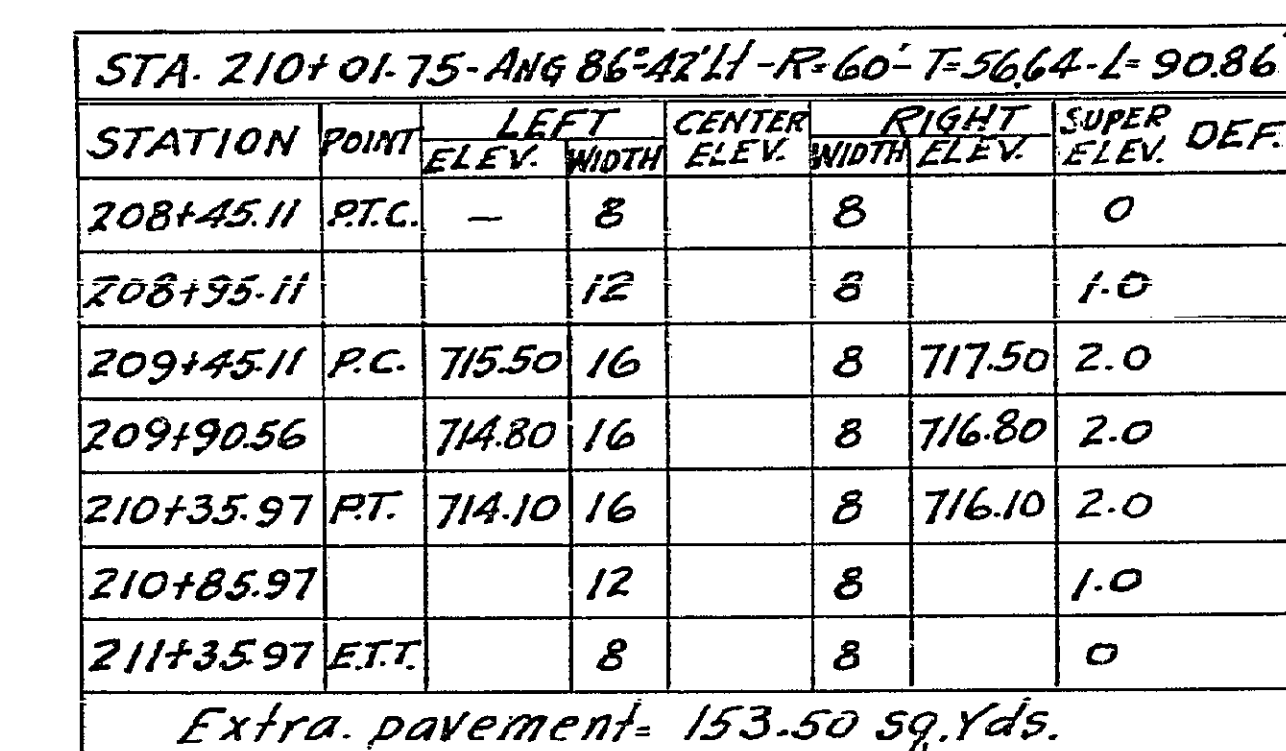 STA. 210+01.75-ANG 86°-42' Lt -R=60'- T=56.64-L= 90.86'
STATION POINT LEFT CENTER RIGHT SUPER DEF.
ELEV. WIDTH ELEV. WIDTH ELEV. ELEV.
208+45.11 P.T.C. — 8 8 0
208+95.11 12 8 1.0
209+45.11 P.C. 715.50 16 8 717.50 2.0
209+90.56 714.80 16 8 716.80 2.0
210+35.97 P.T. 714.10 16 8 716.10 2.0
210+85.97 12 8 1.0
211+35.97 E.T.T. 8 8 0
Extra. pavement= 153.50 sq.Yds.